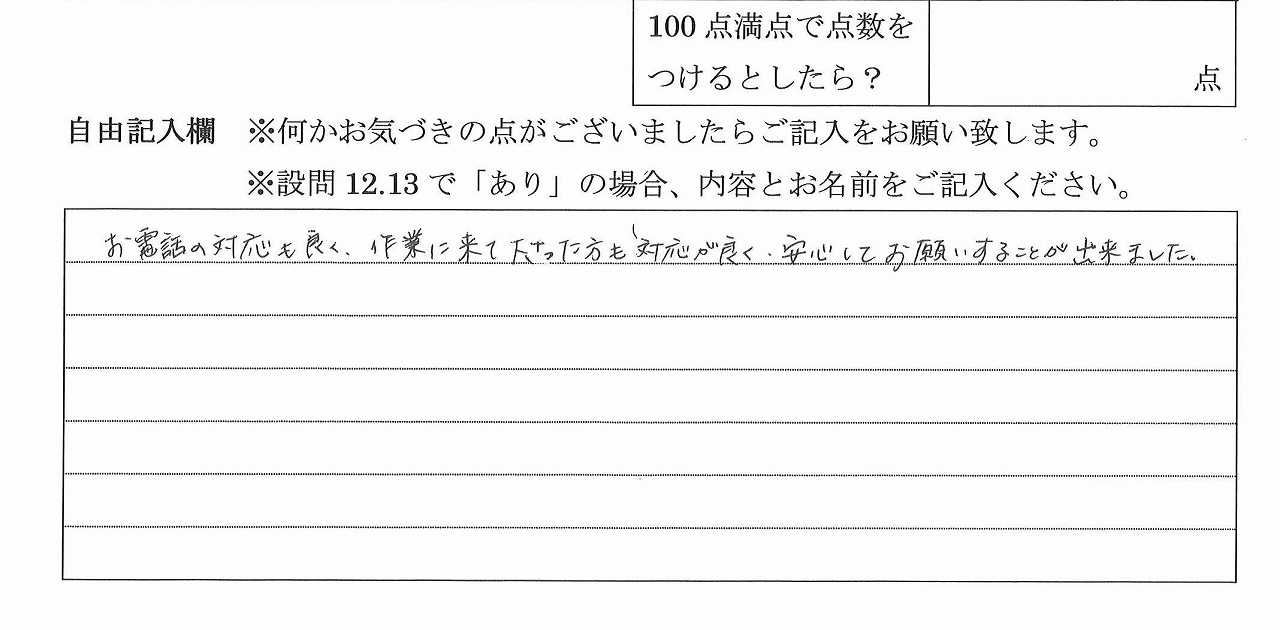 100 点満点で点数を
つけるとしたら？
点
自由記入欄 ※何かお気づきの点がございましたらご記入をお願い致します。
※設問 12.13 で「あり」の場合、内容とお名前をご記入ください。
お電話の対応も良く、作業に来て下さった方も対応が良く、安心してお願いすることが出来ました。